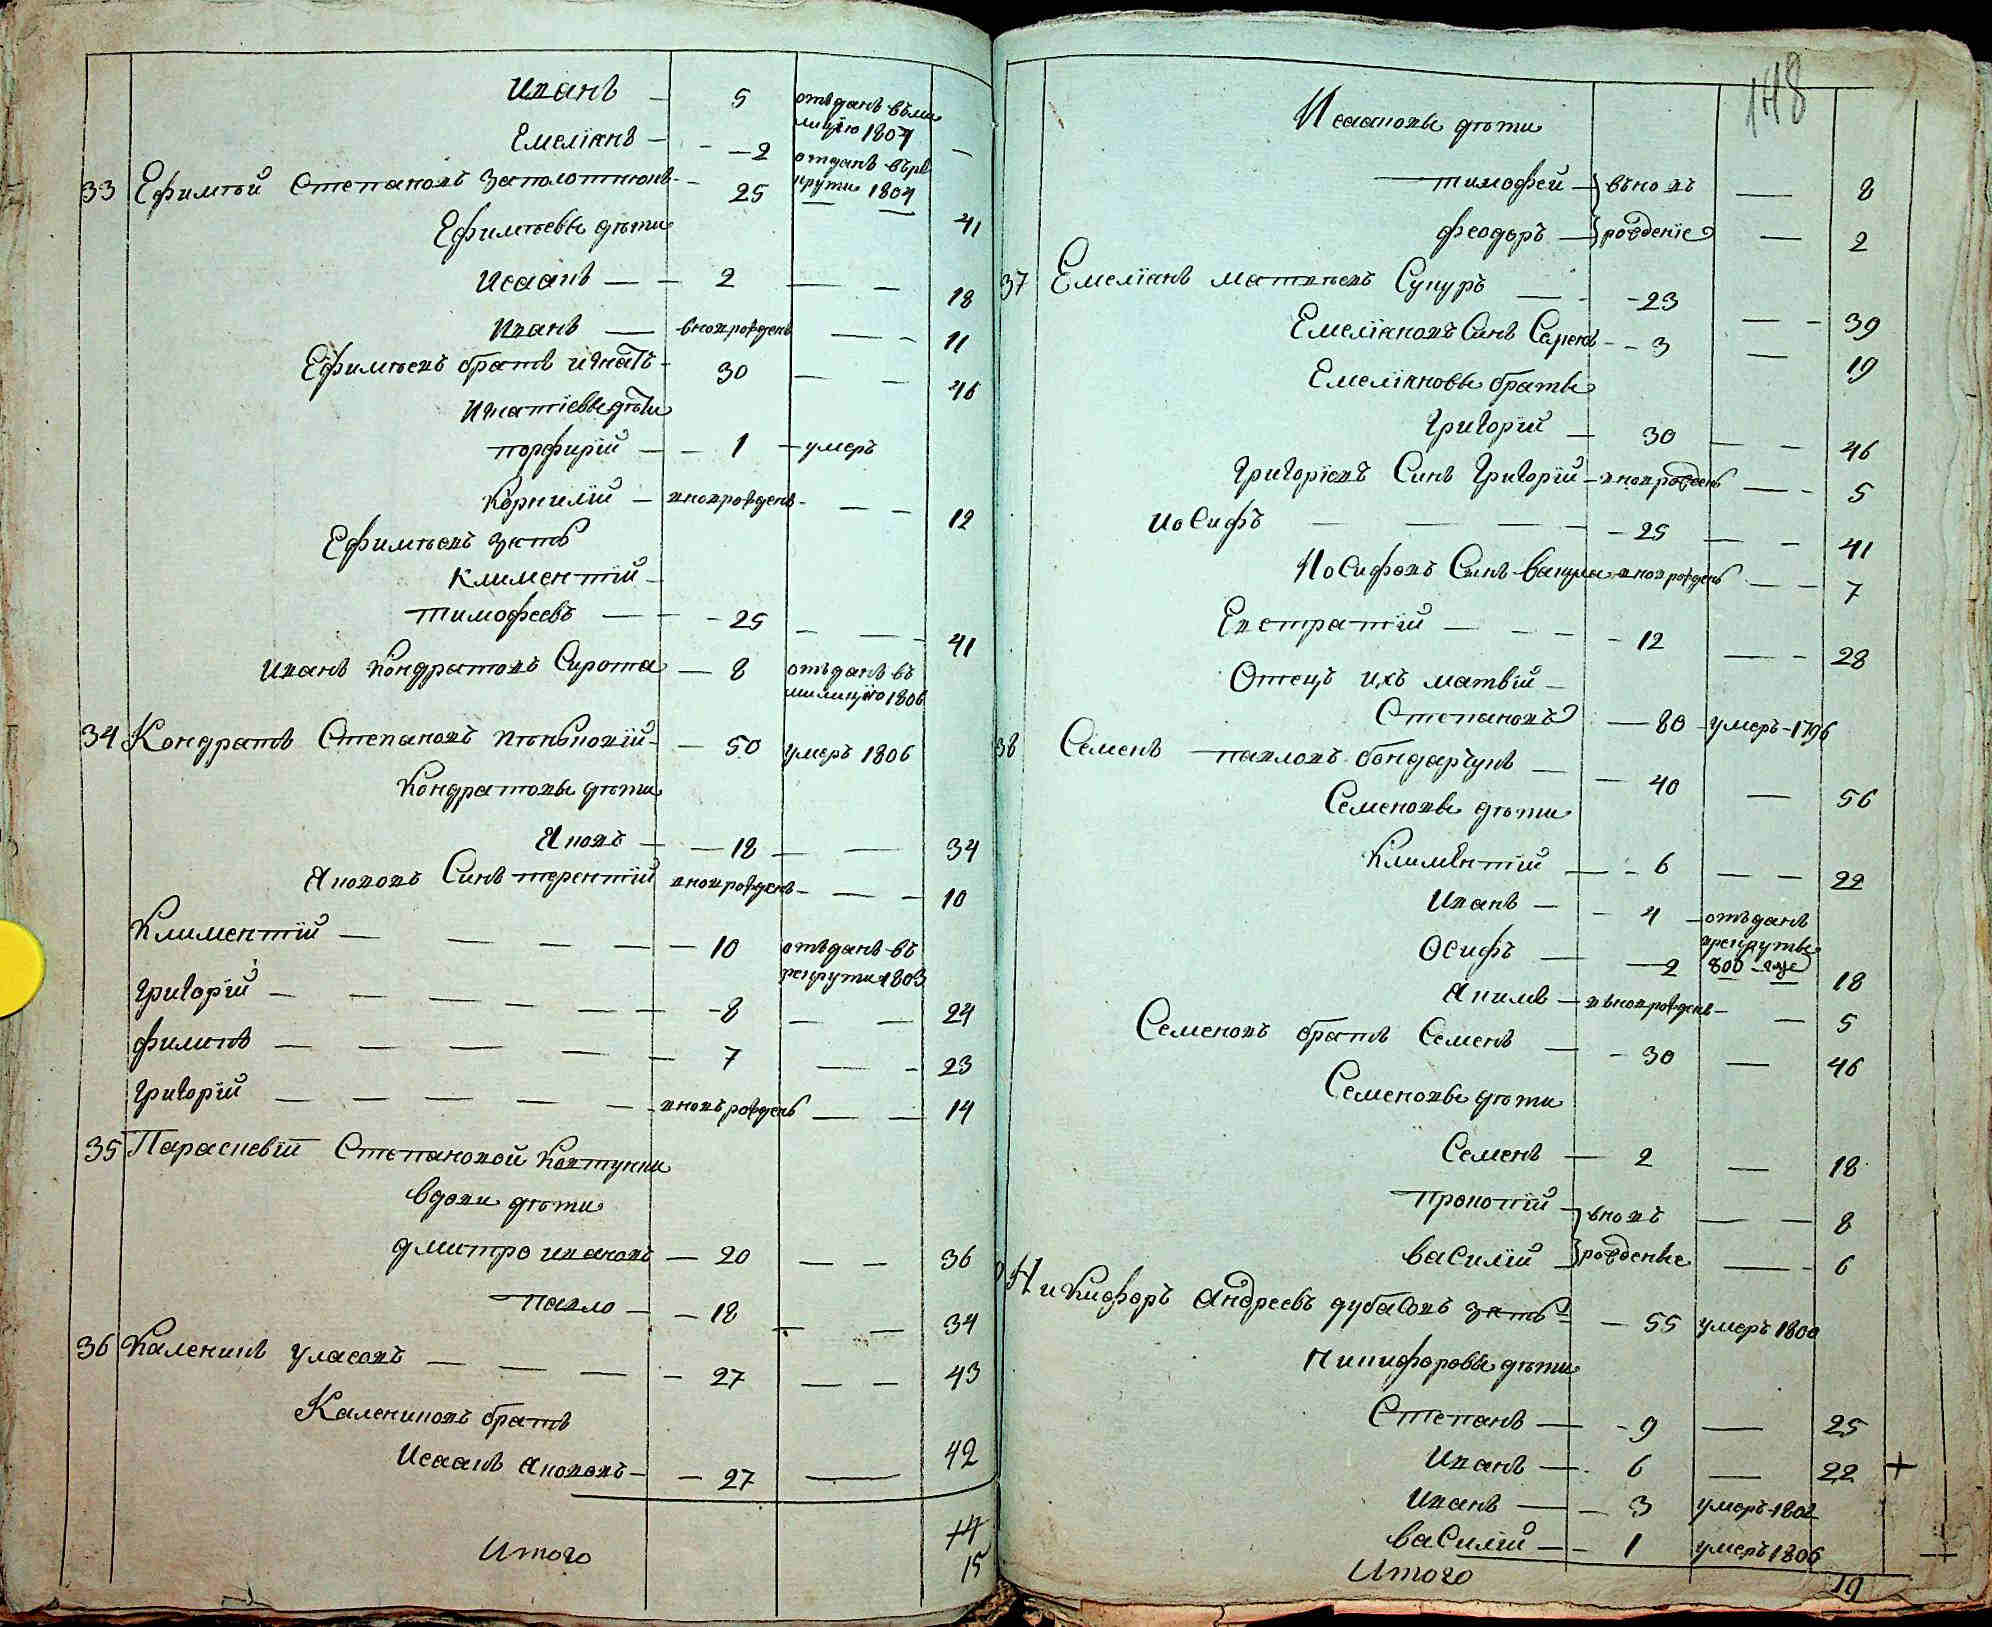 Иванъ — 5 отъданъ въми
лицию 1807
Емелїянъ — 2 отданъ върѣ
крути 1804 —
33 Ефимѣй Степановъ Заполотнюкъ — 25 — — 41
Ефимѣевы дѣти
Исаакъ — 2 — — 18
Иванъ — вновърожденъ — — 11
Ефимѣевъ братъ игнатъ — 30 — — 46
Игнатїевы дѣти
порфирїй — 1 — умеръ
Корнилїй — вновърожденъ — — 12
Ефимѣевъ зять
Климентїй —
тимофеевъ — 25 — — 41
Иванъ Кондратовъ Сирота — 8 отъданъ въ
милицїю 1806
34 Кондратъ Степановъ — 50 умеръ 1806
Кондратовы дѣти
Яковъ — 18 — — 34
Якововъ Синъ терентїй вновърожденъ — — 10
Климентїй — — — — 10 отъданъ въ
рекрути 1803
григорїй — — — — 8 — — 24
филипъ — — — — 7 — — 23
григорїй — — — — вновърожденъ — — 14
35 Параскевїи Степановой Ковтунки
вдови дѣти
дмитро ивановъ — 20 — — 36
павло — 18 — — 34
36 Каленикъ уласовъ — — — 27 — — 43
Калениковъ братъ
Исаакъ Якововъ — 27 — 42
Итого 15
148
Исааковы дѣти
тимофей — вновъ — 8
феодоръ — рожденїе — 2
37 Емелїанъ матвѣевъ Сукуръ — 23 — 39
Емелїяновъ Синъ Семенъ — 3 — 19
Емелїяновы браты
григорїй — 30 — — 46
григорїевъ Синъ григорїй — вновърожденъ — — 5
иосифъ — — — 25 — — 41
Иосифовъ Синъ вакула вновърожденъ — — 7
Евстратїй — — — 12 — — 28
Отецъ ихъ матвїй —
Степановъ — 80 умеръ — 1796
38 Семенъ павловъ бондарчукъ — 40 — 56
Семеновы дѣти
Климентїй — 6 — — 22
Иванъ — 4 — отъданъ
врекруты
800 годе
Осифъ — 2 — — 18
Якимъ — вновърожденъ — — 5
Семеновъ братъ Семенъ — 30 — 46
Семеновы дѣти
Семенъ — 2 — 18
прокопїй — вновъ — — 8
василїй — рожденые — 6
Никифоръ андреевъ дубасовъ зять — 55 умеръ 1800
Никифоровы дѣти
Степанъ — 9 — 25
Иванъ — 6 — 22 +
Иванъ — 3 умеръ 1802
василїй — 1 умеръ 1806
Итого 19